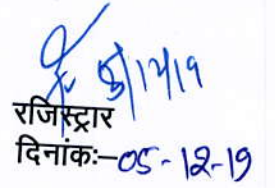 5/12/19
रजिस्ट्रार
दिनांकः—05-12-19